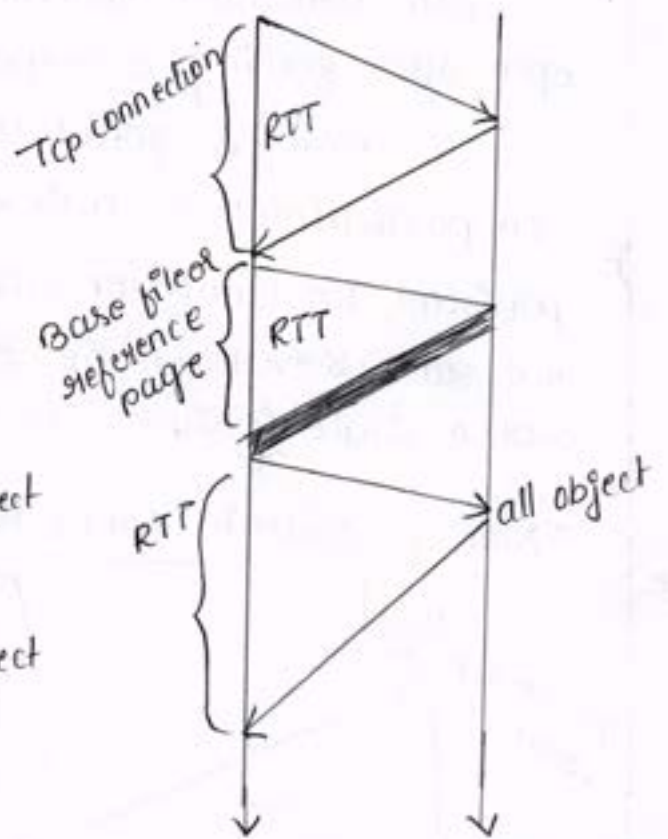 TCP connection
RTT
Base file or
reference
page
RTT
ect
RTT
all object
ect